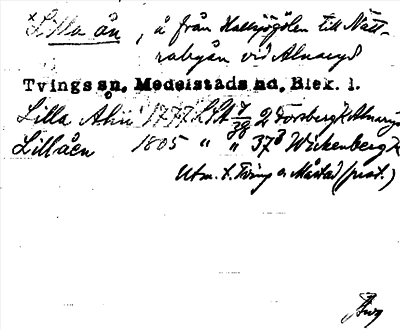 ×Lilla ån, å från Hallsjögölen till Nätt-
rabyån vid Alnaryd
Tvings sn, Medelstads hd, Blek. l.
Lilla Åhn 1777 LSA 7/39 2, Torsberg, Alnaryd
Lillåen 1805 " " 37 Wickenberg
Utm. t. Tving o. Måstad (prot.)